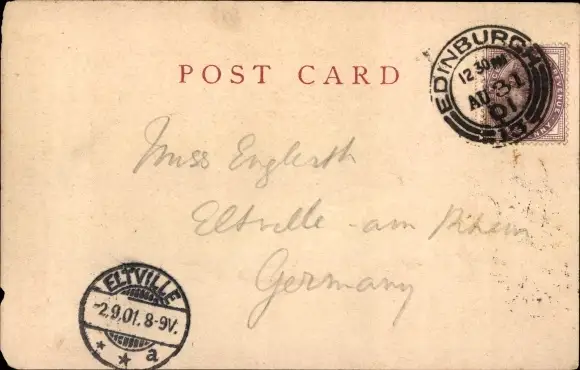 POST CARD
EDINBURGH
12 30 PM
AU 31
01
13
REVENUE
Miss Englerth
Eltville am Rhein
Germany
ELTVILLE
-2.9.01.8-9V.
* * a